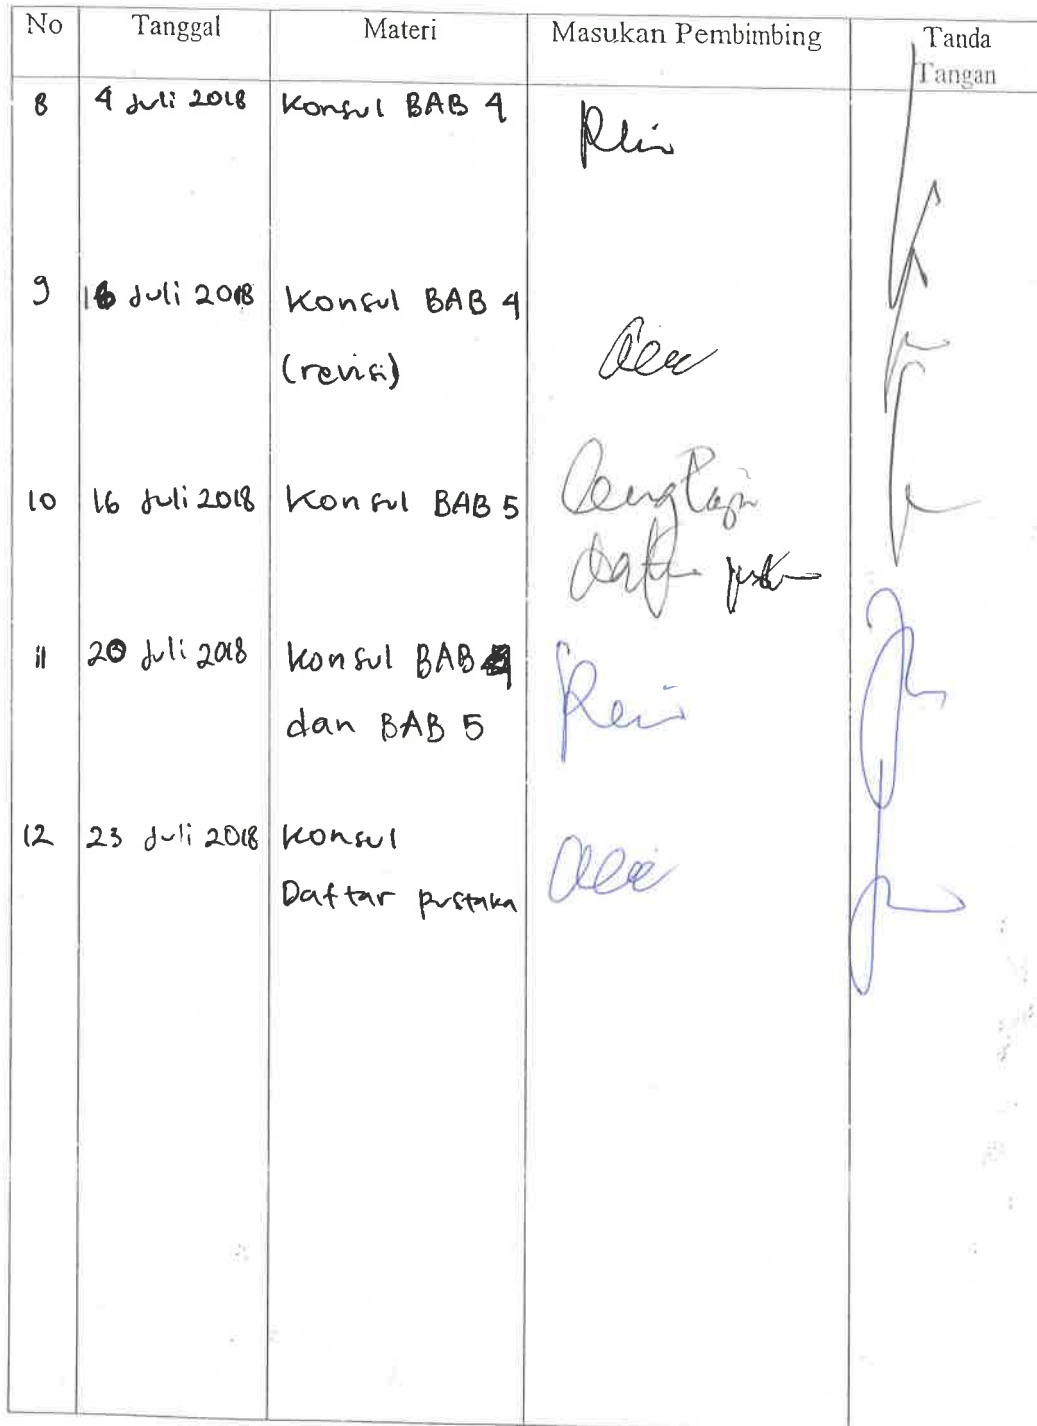 No Tanggal Materi Masukan Pembimbing Tanda
Tangan
8 4 Juli 2018 Konsul BAB 4
9 Juli 2018 Konsul BAB 4
(revisi)
10 16 Juli 2018 Konsul BAB 5 Lengkapi
daftar pustaka
11 20 Juli 2018 Konsul BAB 4
dan BAB 5
12 23 Juli 2018 Konsul
Daftar pustaka